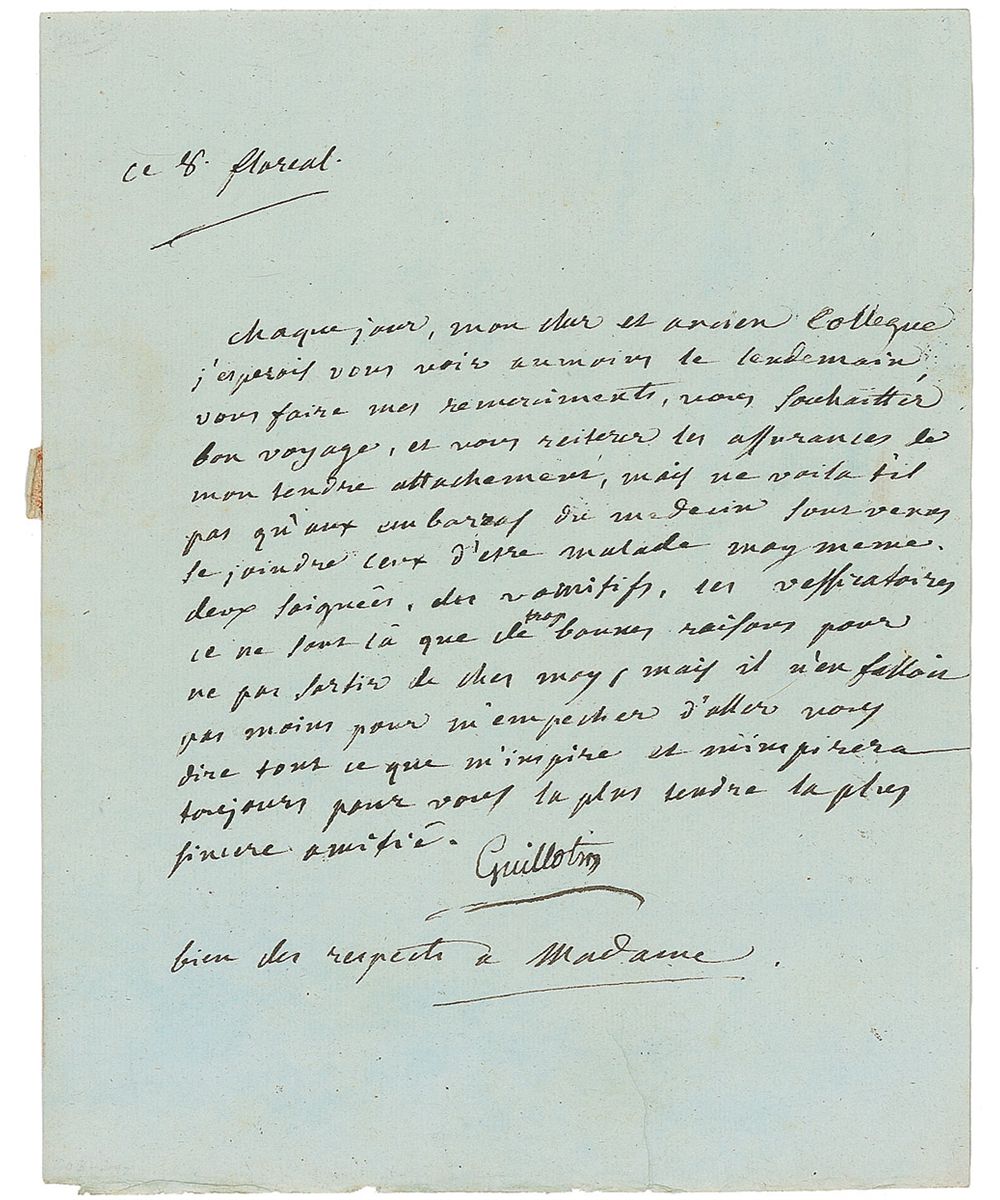 ce 8. floreal.
chaque jour, mon cher et ancien Collegue
j'esperois vous voir aumoins le lendemain,
vous faire mes remerciments, vous souhaitter
bon voyage, et vous reiterer les assurances de
mon tendre attachement, mais ne voila t'il
pas qu'aux embarras du medecin sont venus
se joindre ceux d'etre malade moy meme.
deux saignées, des vomitifs, des vessicatoires
ce ne sont là que de trop bonnes raisons pour
ne pas sortir de chez moy, mais il n'en falloit
pas moins pour m'empecher d'aller vous
dire tout ce que m'inspire et m'inspirera
toujours pour vous la plus tendre la plus
sincere amitié.
Guillotin
bien des respects a Madame.